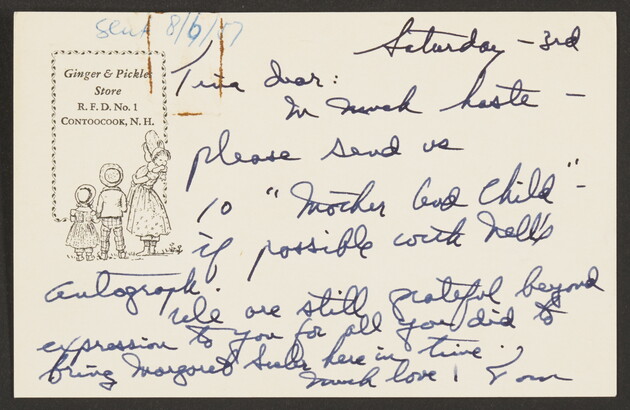 sent 8/6/57
Saturday – 3rd
Ginger & Pickles
Store
R. F. D. No. 1
Contoocook, N. H.
Tina dear:
In much haste –
please send us
10 "Mother and Child" –
if possible with Nell's
autograph.
We are still grateful beyond
expression to you for all you did to
bring Margaret here in time.
Much love! Tom